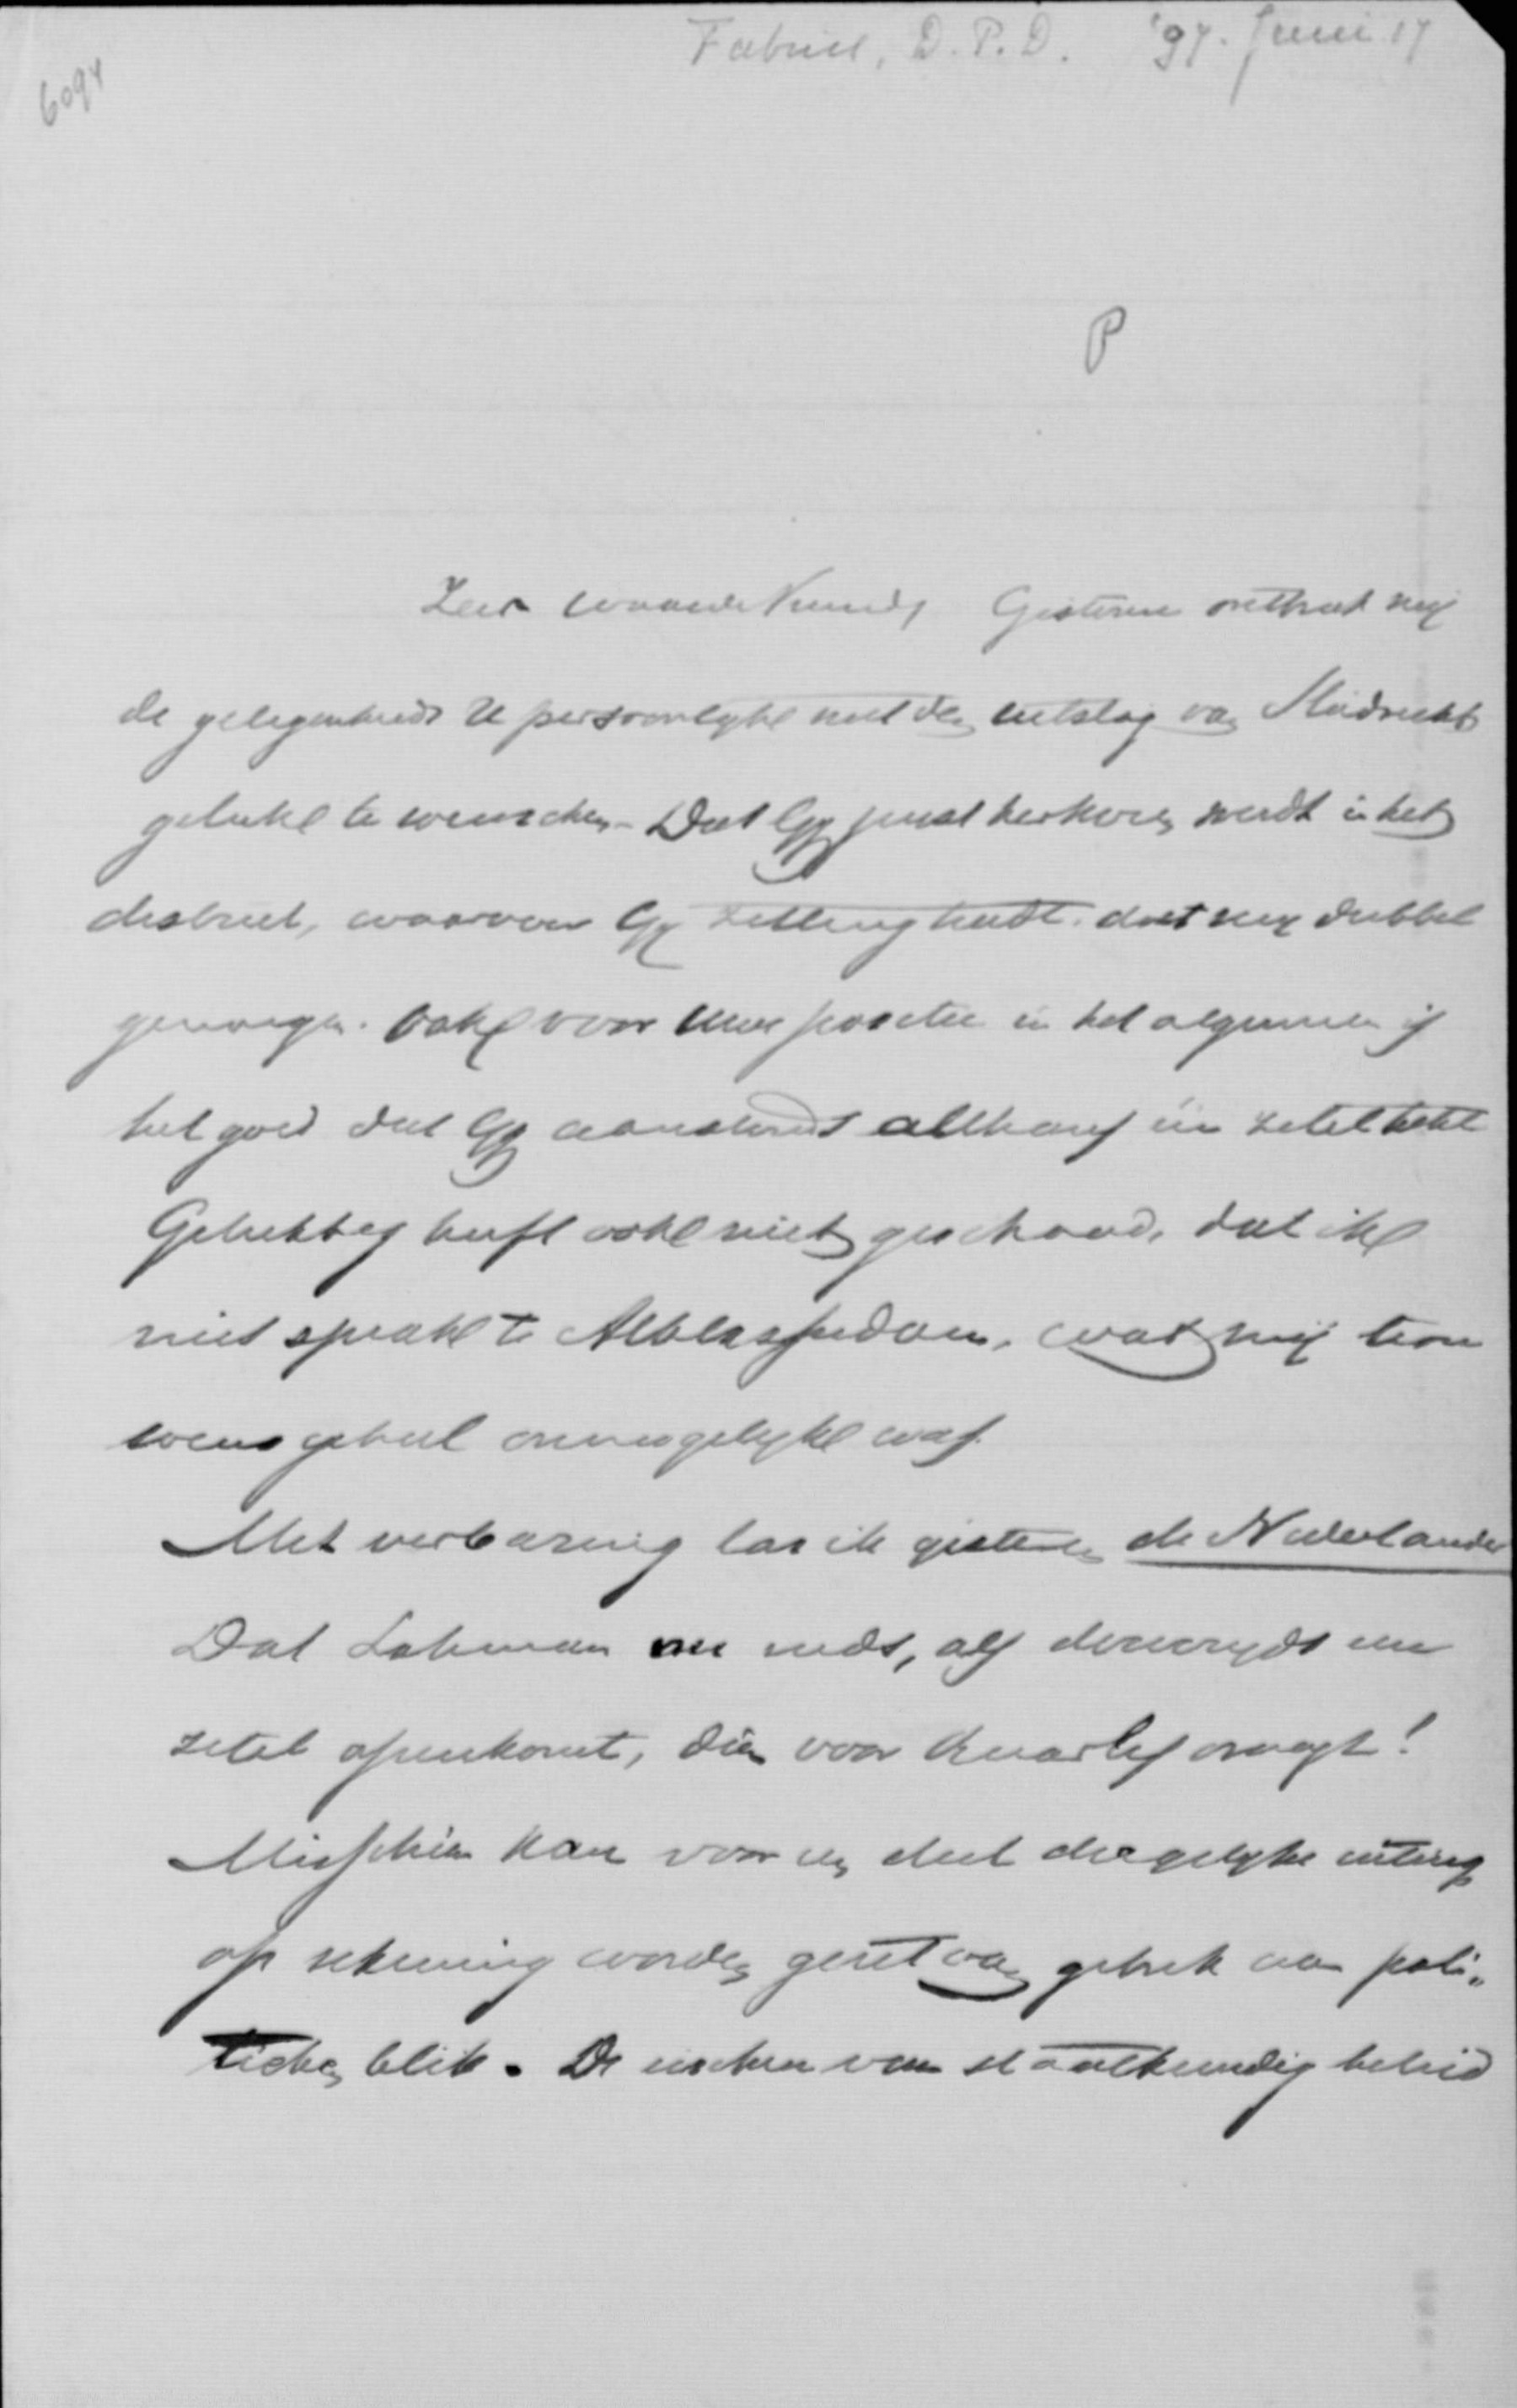 Fabius, D.P.D. '97. Juni 17
6094
P
Zeer waarde Vriend, Gisteren ontbrak mij
de gelegenheid U persoonlijk met den uitslag van Mijdrecht
geluk te wenschen. Dat Gij juist herkozen werdt in het
district, waarvoor Gij zitting hadt, doet mij dubbel
genoegen. Ook voor Uwe positie in het algemeen is
het goed dat Gij aanstonds althans één zetel hebt
Gelukkig heeft ook niet geschaad, dat ik
niet sprak te Alblasserdam, wat mij trou
wens geheel onmogelijk was.
Met verbazing las ik gisteren de Nederlander
Dat Lohman nu reeds, als doodend een
zetel openkomt, dien voor vraagt!
Misschien kan voor een deel dergelijke uiting
op rekening worden gezet van gebrek aan poli„
tieken blik. De eischen van staatkundig beleid